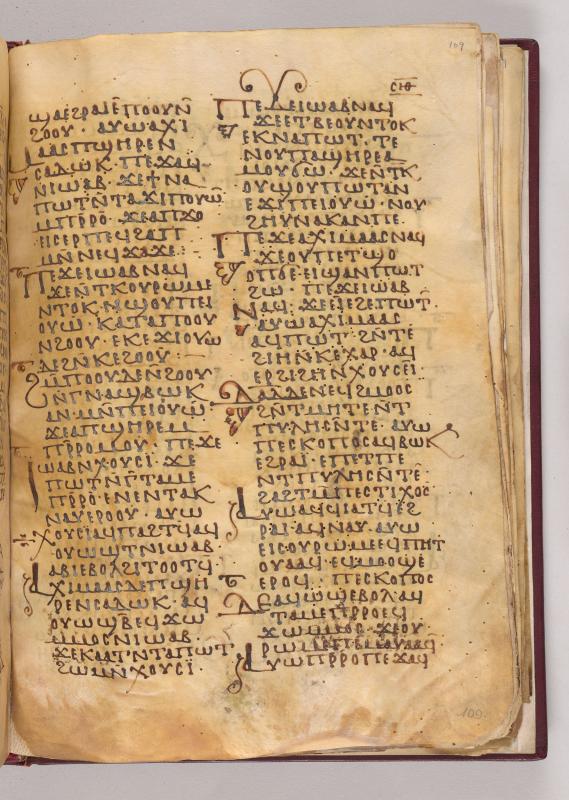 ⲥⲓⲑ
109
ϣⲁⲉϩⲣⲁⲓⲉ̄ⲡⲟⲟⲩⲛ̄
ϩⲟⲟⲩ · ⲁⲩⲱⲁⲭⲓ
ⲙⲁⲁⲥⲡϣⲏⲣⲉⲛ
ⲥⲁⲇⲱⲕ · ⲡⲉϫⲁϥ
ⲛⲓⲱⲁⲃ · ϫⲉϯⲛⲁ
ⲡⲱⲧⲛ̄ⲧⲁϫⲓⲡⲟⲩⲱ
ⲙⲡⲣ̄ⲣⲟ · ϫⲉⲁⲡϫⲟ
ⲉⲓⲥⲉⲣⲡⲉϥϩⲁⲡ
ⲙⲛ̄ⲛⲉϥϫⲁϫⲉ
ⲡⲉϫⲉⲓⲱⲁⲃⲛⲁϥ
ϫⲉⲛ̄ⲧⲕⲟⲩⲣⲱⲙⲉ
ⲛⲧⲟⲕ · ⲛϣⲟⲩⲡⲉⲓ
ⲟⲩⲱ · ⲕⲁⲧⲁⲡⲟⲟⲩ
ⲛϩⲟⲟⲩ · ⲉⲕⲉϫⲓⲟⲩⲱ
ⲇⲉϩⲛ̄ⲕⲉϩⲟⲟⲩ ·
ϩⲙⲡⲟⲟⲩⲇⲉⲛϩⲟⲟⲩ
ⲛ̄ⲅⲛⲁϣⲃⲱⲕ
ⲁⲛ · ⲙⲛ̄ⲡⲉⲓⲟⲩⲱ
ϫⲉⲁⲡϣⲏⲣⲉⲙ
ⲡⲣ̄ⲣⲟⲙⲟⲩ · ⲡⲉϫⲉ
ⲓⲱⲁⲃⲛⲭⲟⲩⲥⲓ̈ · ϫⲉ
ⲡⲱⲧⲛⲅ̄ⲧⲁⲙⲉ
ⲡⲣ̄ⲣⲟ · ⲉⲛⲉⲛⲧⲁⲕ
ⲛⲁⲩⲉⲣⲟⲟⲩ · ⲁⲩⲱ
ⲭⲟⲩⲥⲓ̈ⲁϥⲡⲁϩⲧϥⲁϥ
ⲟⲩⲱϣⲧⲛⲓⲱⲁⲃ
ⲁϥⲓⲉⲃⲟⲗϩⲓⲧⲟⲟⲧϥ
ⲁⲭⲓⲙⲁⲁⲥⲇⲉⲡϣⲏ
ⲣⲉⲛⲥⲁⲇⲱⲕ · ⲁϥ
ⲟⲩⲱϣⲃⲉϥϫⲱ
ⲙⲙⲟⲥⲛⲓⲱⲁⲃ ·
ϫⲉⲕⲁⲁⲧⲛⲧⲁⲡⲱⲧ
ϩⲱⲙⲛⲭⲟⲩⲥⲓ̈ ·
ⲡⲉϫⲉⲓⲱⲁⲃⲛⲁϥ
ϫⲉⲉⲧⲃⲉⲟⲩⲛⲧⲟⲕ
ⲉⲕⲛⲁⲡⲱⲧ · ⲧⲉ
ⲛⲟⲩⲡⲁϣⲏⲣⲉ
ϭⲱ · ϫⲉⲛ̄ⲧⲕ
ⲟⲩϣⲟⲩⲡⲱⲧⲁⲛ
ⲉϫⲓⲡⲉⲓⲟⲩⲱ · ⲛⲟⲩ
ϩⲏⲩⲛⲁⲕⲁⲛⲡⲉ ·
ⲡⲉϫⲉⲁⲭⲓⲙⲁⲁⲥⲛⲁϥ
ϫⲉⲟⲩⲡⲉⲧϣⲟ
ⲟⲡϭⲉ · ⲉⲓϣⲁⲛⲡⲱⲧ
ϩⲱ · ⲡⲉϫⲉⲓⲱⲁⲃ
ⲛⲁϥ · ϫⲉⲉⲓⲉϩⲉⲡⲱⲧ ·
ⲁⲩⲱⲁⲭⲓⲙⲁⲁⲥ
ⲁϥⲡⲱⲧ · ϩⲛⲧⲉ
ϩⲓⲏⲛ̄ⲕⲉⲭⲁⲣ · ⲁϥ
ⲉⲣϩⲓϩⲏⲛⲭⲟⲩⲥⲉⲓ̈ ·
ⲇⲁⲇⲇⲉⲛⲉϥϩⲙⲟⲟⲥ
ϩⲛ̄ⲧⲙⲏⲧⲉⲛ̄ⲧ
ⲡⲩⲗⲏⲥⲛ̄ⲧⲉ · ⲁⲩⲱ
ⲡⲉⲥⲕⲟⲡⲟⲥⲁϥⲃⲱⲕ
ⲉϩⲣⲁⲓ · ⲉⲡⲉⲧⲡⲉ
ⲛⲧⲡⲩⲗⲏⲥⲛ̄ⲧⲉ̄ ·
ϩⲁϩⲧⲙⲡⲉⲥⲧⲓⲭⲟⲥ
ⲁⲩⲱⲁϥϥⲓⲓⲁⲧϥⲉϩ
ⲣⲁⲓ · ⲁϥⲛⲁⲩ · ⲁⲩⲱ
ⲉⲓⲥⲟⲩⲣⲱⲙⲉⲉϥⲡⲏⲧ
ⲟⲩⲁⲁϥ · ⲉϥⲙⲟⲟϣⲉ
ⲉⲣⲟϥ · ⲡⲉⲥⲕⲟⲡⲟⲥ
ⲇⲉⲁϥⲱϣⲉⲃⲟⲗⲁϥ
ⲧⲁⲙⲉⲡⲣ̄ⲣⲟⲉϥ
ϫⲱⲙⲙⲟⲥ · ϫⲉⲟⲩ
ⲣⲱⲙⲉⲡⲉⲙⲁⲩⲁⲁϥ
ⲁⲩⲱⲡⲣ̄ⲣⲟⲡⲉϫⲁϥ
109